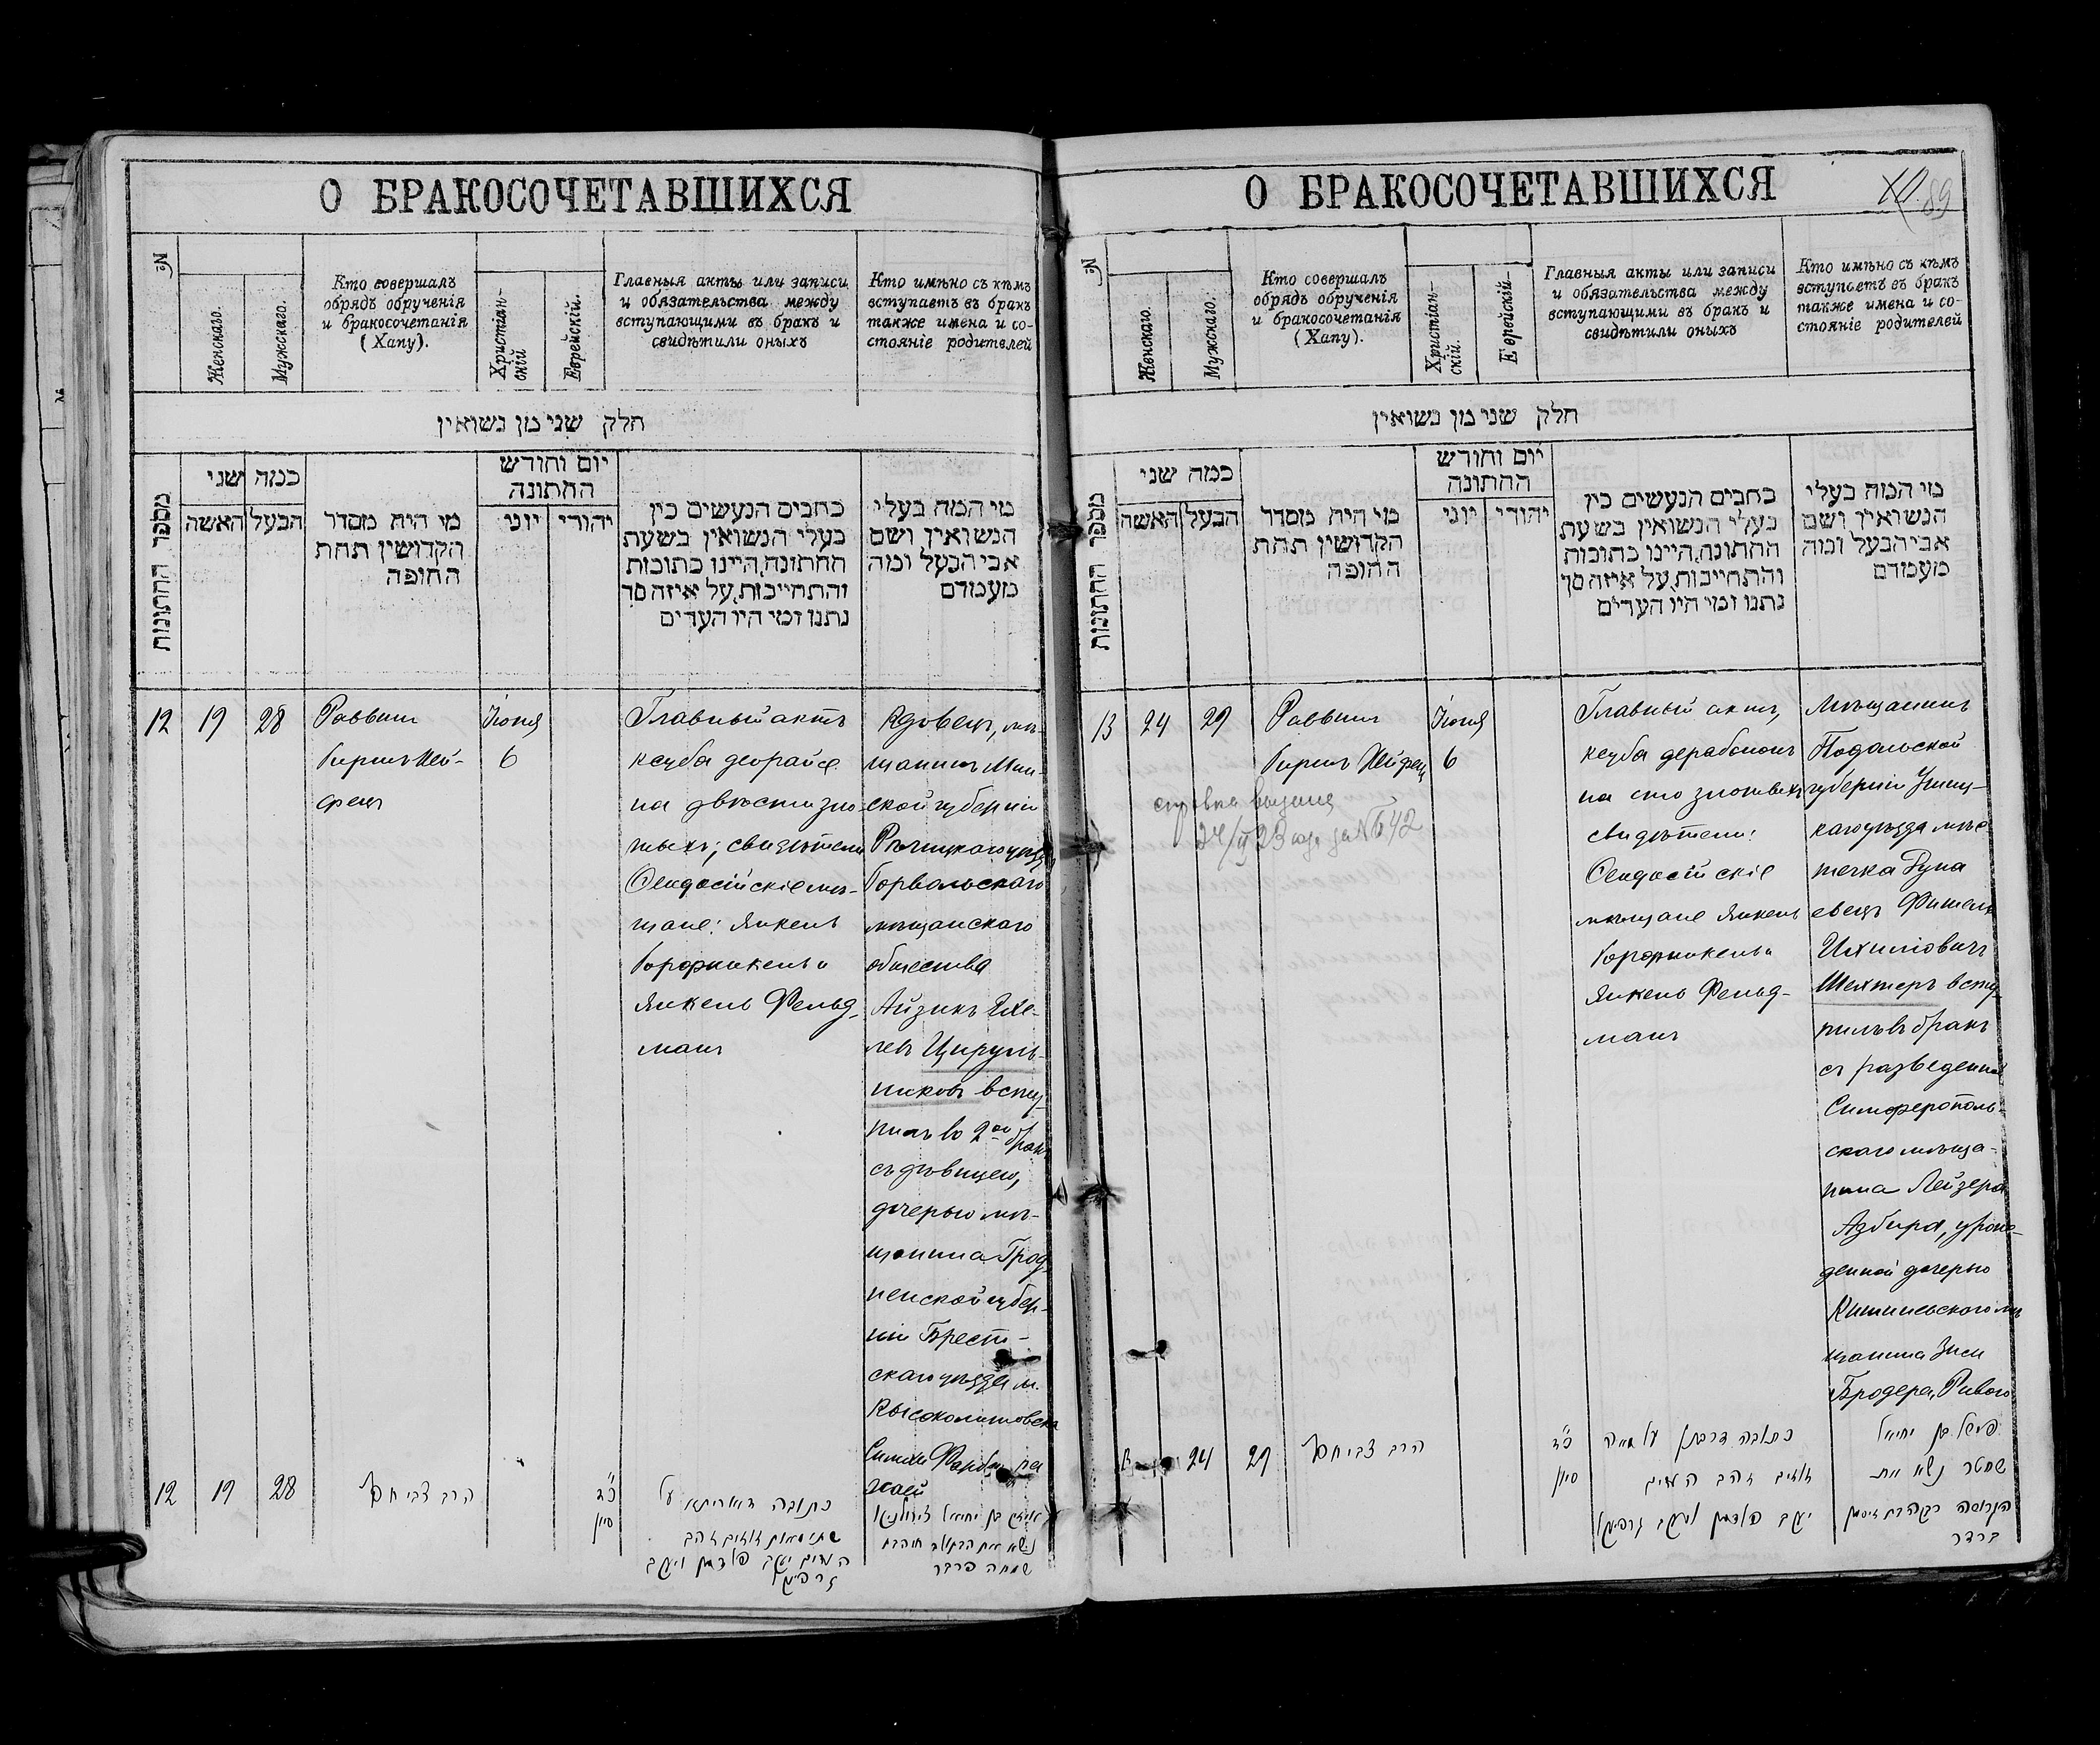 О БРАКОСОЧЕТАВШИХСЯ
№
Женскаго.
Мужскаго.
Кто совершалъ
обрядъ обрученія
и бракосочетанія
(Хапу).
Христіан-
скій
Еврейскій.
Главныя акты или записи
и обязательства между
вступающими въ бракъ и
свидѣтили оныхъ
Кто имѣно съ кѣмъ
вступаетъ въ бракъ
также имена и со-
стояніе родителей
חלק שני מן נשואין
מספר החתונות
כמה שני
האשה
הבעל
מי היה מסדר
הקדושין תחת
החופה
יום וחודש
החתונה
יוני
יהודי
כתבים הנעשים בין
בעלי הנשואין בשעת
החתונה, היינו כתובות
והתחייבות, על איזה סך
נתנו ומי היו העדים
מי המה בעלי
הנשואין ושם
אבי הבעל ומה
מעמדם
12
19
28
Раввинъ
Гиршъ Хей-
фецъ
Іюня
6
Главный актъ
ксуба деорайсе
на двѣсти зло-
тыхъ; свидѣтели
Ѳеодосійскіе мѣ-
щане: Янкель
и
Янкель Фельд-
манъ
Вдовецъ, мѣ-
щанинъ Мин-
ской губерніи
Рѣчицкаго уѣзда
Горвальскаго
мѣщанскаго
общества
Айзикъ Ихе-
левъ Цируль-
никовъ всту-
пилъ во 2ой бракъ
съ дѣвицею,
дочерью мѣ-
щанина Грод-
ненской губер-
ніи Брест-
скаго уѣзда м.
Высоколитовска
12
19
28
הרב צבי חפץ
כ״ד
סיון
כתובה דאורייתא על
О БРАКОСОЧЕТАВШИХСЯ
89
№
Женскаго.
Мужскаго.
Кто совершалъ
обрядъ обрученія
и бракосочетанія
(Хапу).
Христіан-
скій.
Еврейскій.
Главныя акты или записи
и обязательства между
вступающими въ бракъ и
свидѣтили оныхъ
Кто имѣно съ кѣмъ
вступаетъ въ бракъ
также имена и со-
стояніе родителей
חלק שני מן נשואין
מספר החתונות
כמה שני
האשה
הבעל
מי היה מסדר
הקדושין תחת
החופה
יום וחודש
החתונה
יוני
יהודי
כתבים הנעשים בין
בעלי הנשואין בשעת
החתונה, היינו כתובות
והתחייבות, על איזה סך
נתנו ומי היו העדים
מי המה בעלי
הנשואין ושם
אבי הבעל ומה
מעמדם
13
24
29
Раввинъ
Гиршъ Хейфецъ
Іюня
6
справка выдана
Главный актъ,
ксуба дерабононъ
на сто злотыхъ
свидѣтели:
Ѳеодосійскіе
мѣщане Янкель
и
Янкель Фельд-
манъ
Мѣщанинъ
Подольской
губерніи Ушиц-
каго уѣзда мѣс-
течка Дуна
евецъ Фишель
Ихиловичъ
Шехтеръ всту-
пилъ въ бракъ
съ разведенной
Симферополь-
скаго мѣща-
нина Лейзера
Азбира, урож-
денной дочерью
Кишиневскаго мѣ
щанина Зиси
Бродера, Ривою
24
29
הרב צבי חפץ
כ״ד
סיון
כתובה דרבנן על מאה
פישל בן יחיאל
שחטר נשא את
ברדר